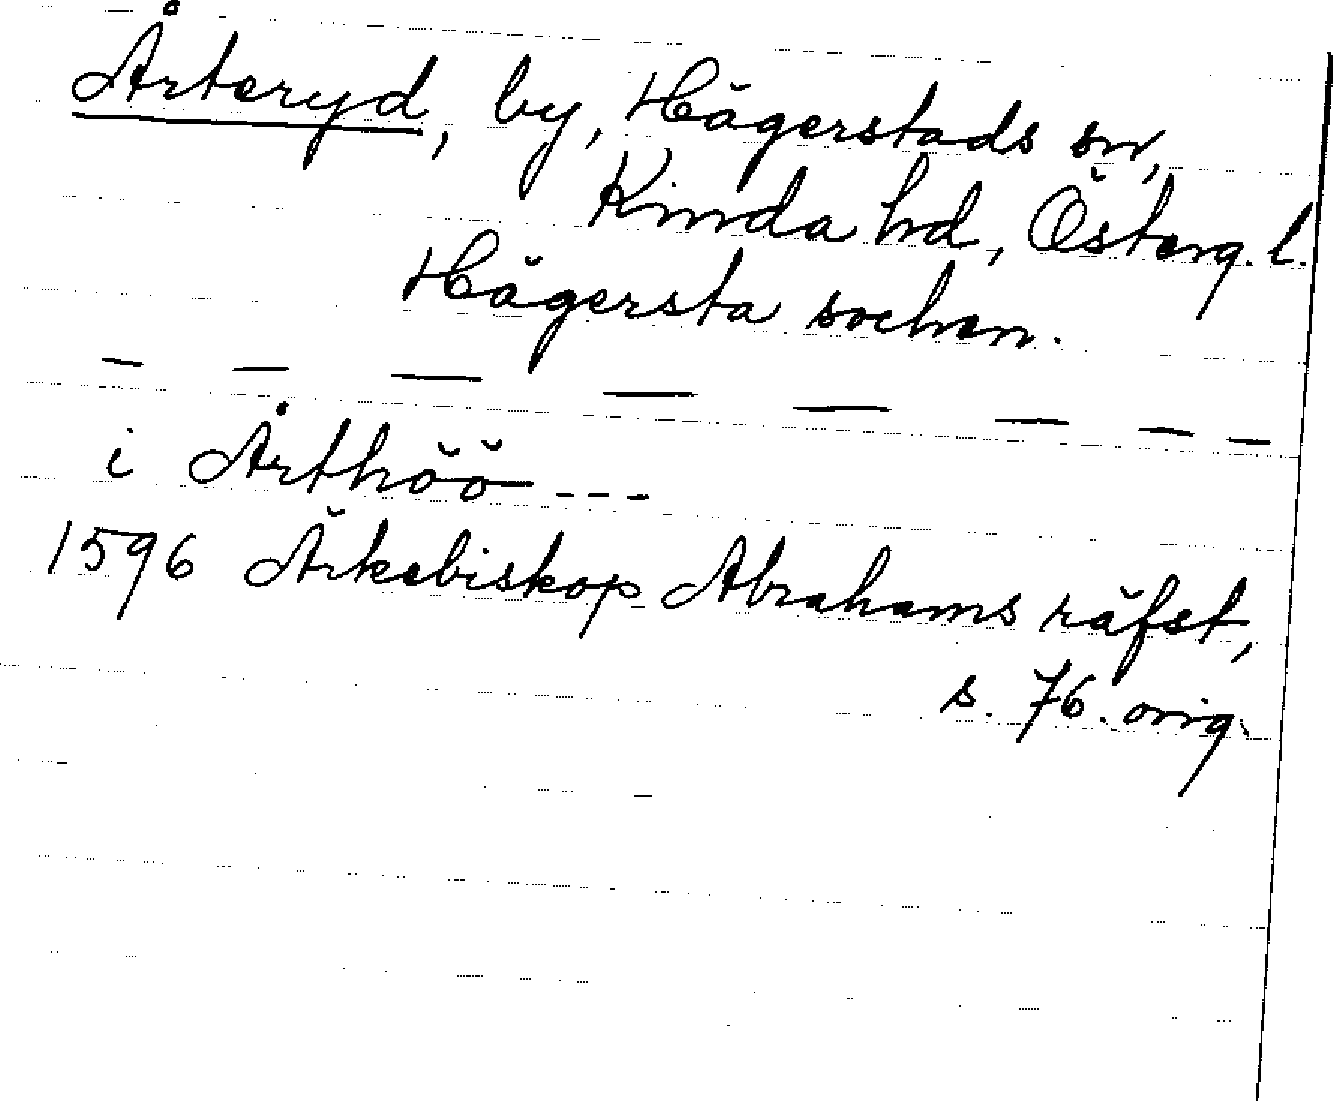 Årteryd, by, Hägerstads sn,
Kinda hd, Österg. l.
Hägersta sochen.
— — — — — — — —
i Årthöö - - -
1596 Ärkebiskop Abrahams räfst,
s. 76. orig.